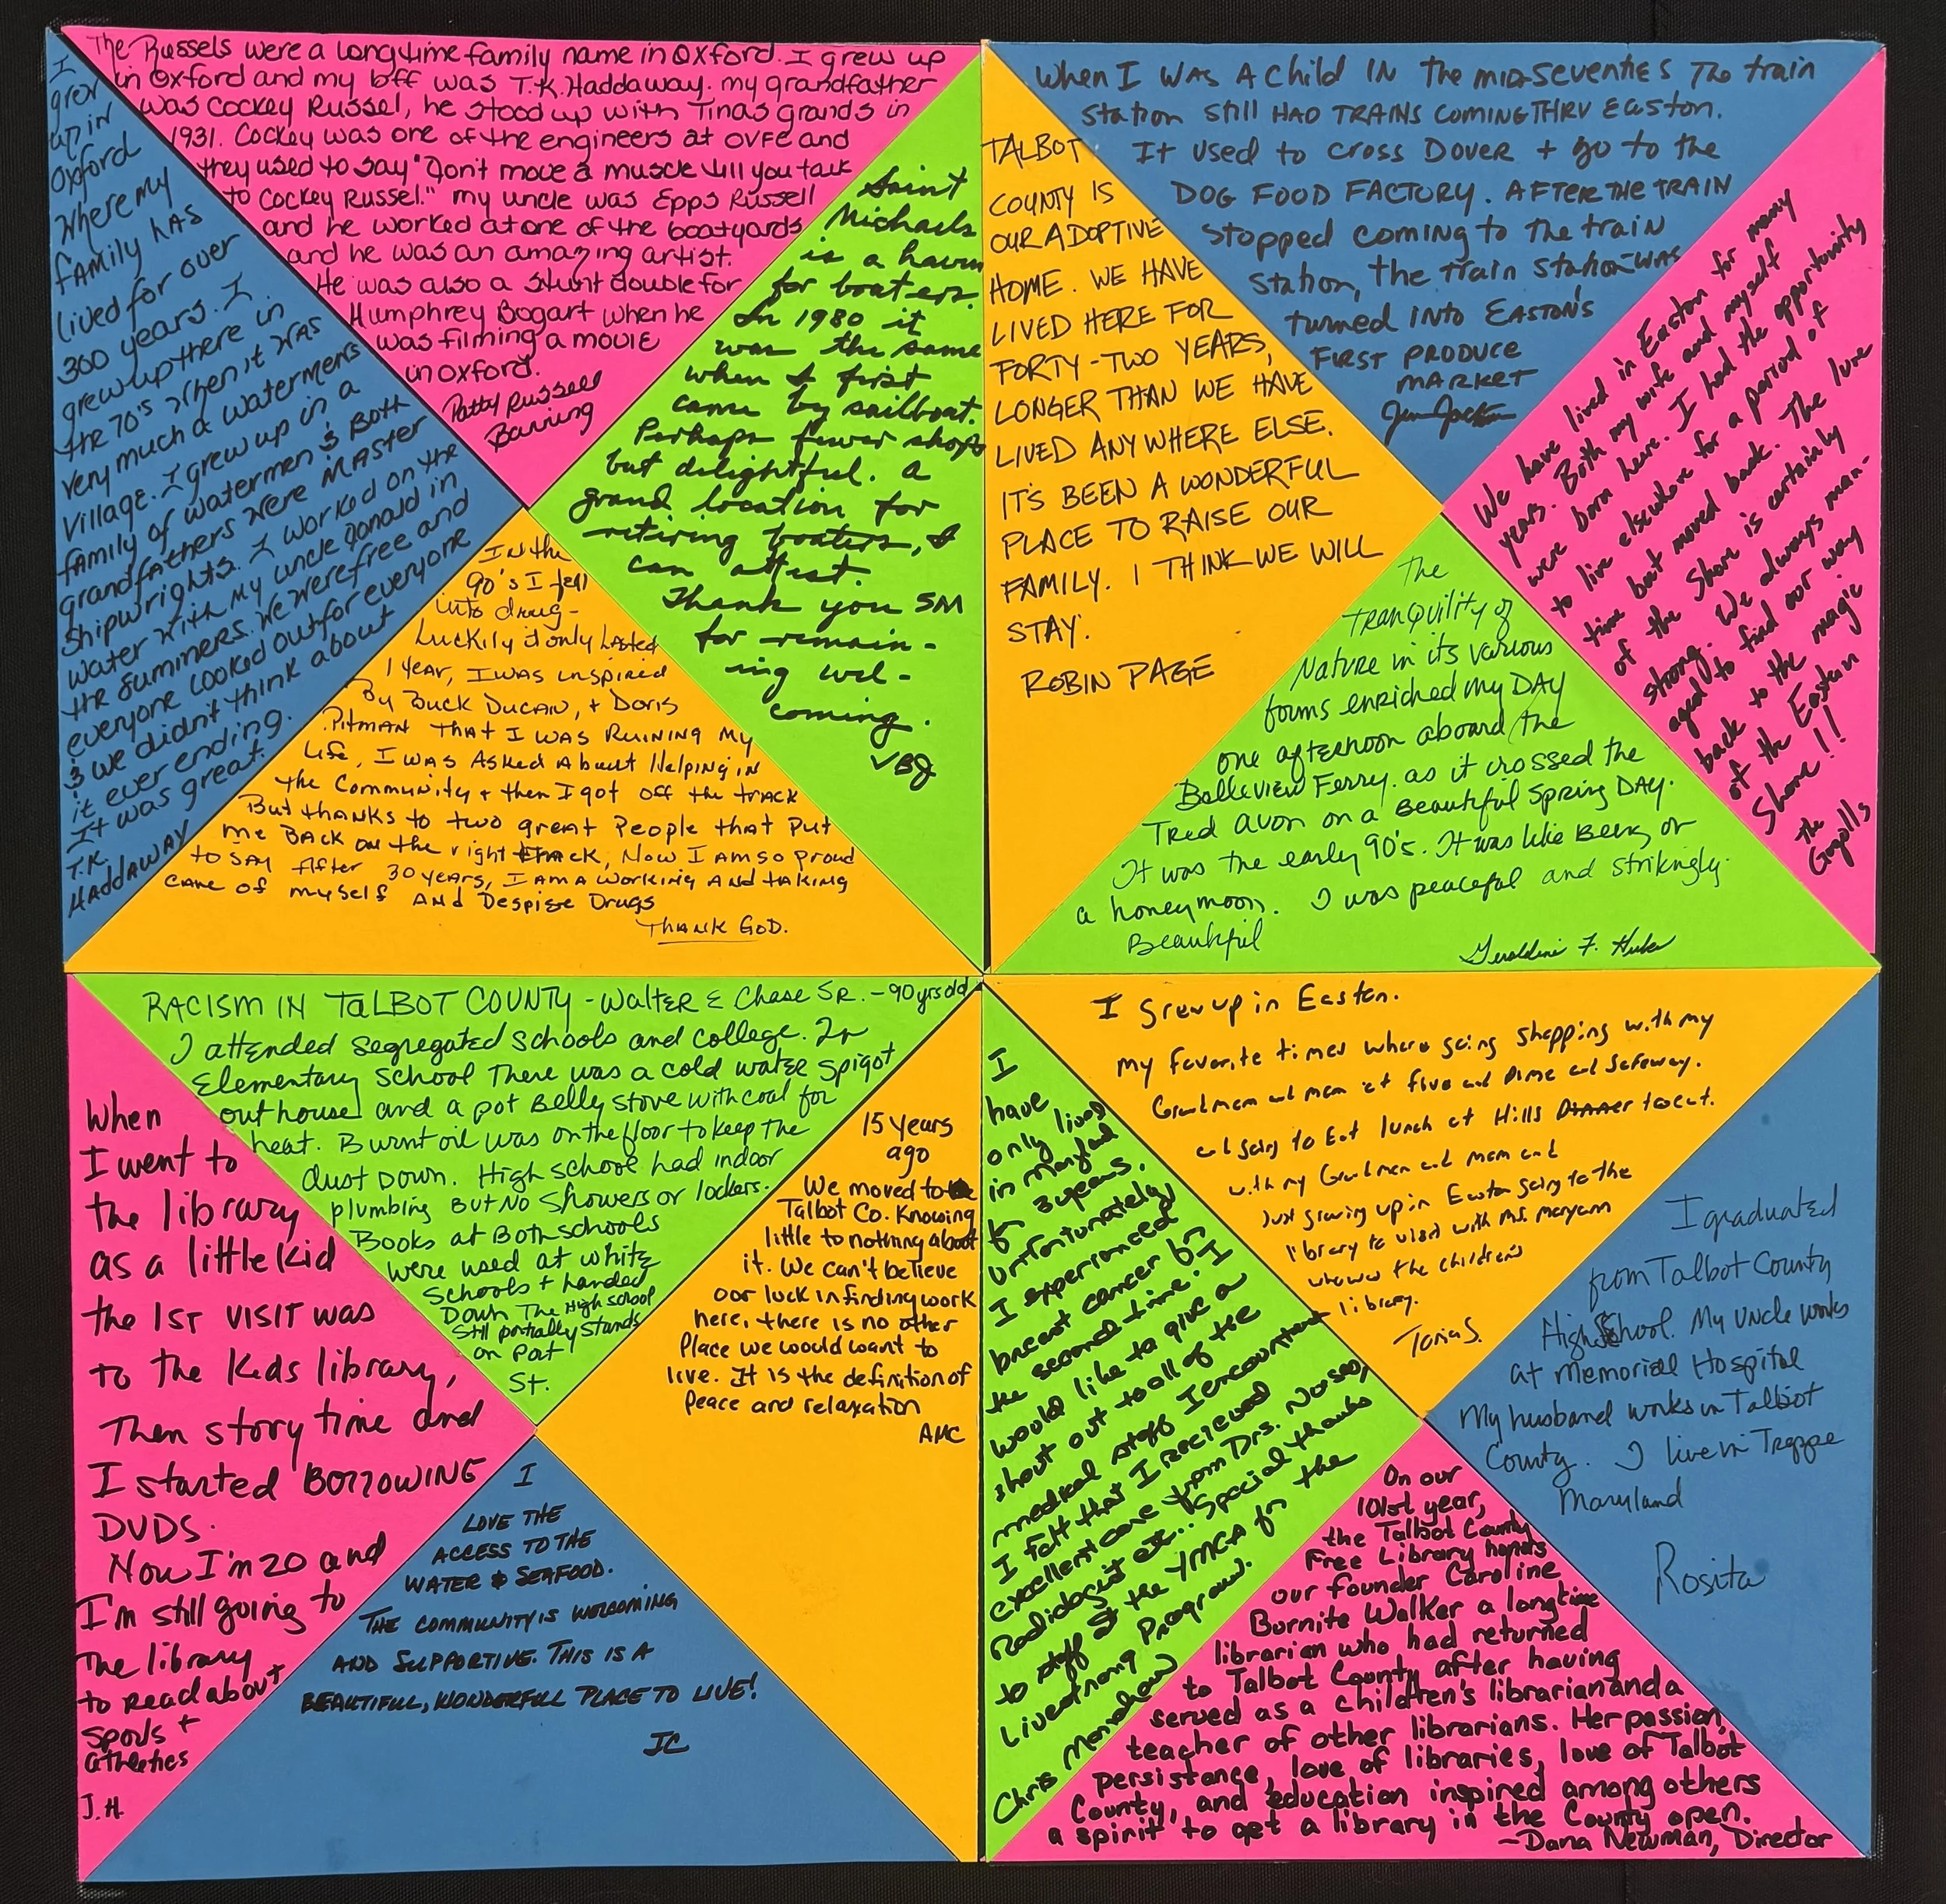 The Russels were a longtime family name in Oxford. I grew up
in Oxford and my bff was T.K. Haddaway. my grandfather
was Cockey Russel, he stood up with Tinas grands in
1931. Cockey was one of the engineers at OVFC and
they used to say "Don't move a muscle till you talk
to Cockey Russel." my uncle was Epps Russell
and he worked at one of the boatyards
and he was an amazing artist.
He was also a stunt double for
Humphrey Bogart when he
was filming a movie
in Oxford.
Patty Russell
Banning
I
grew
up in
Oxford
where my
family has
lived for over
300 years. I
grew up there in
the 70's when it was
very much a watermens
village. I grew up in a
family of watermen & both
grandfathers were master
shipwrights. I worked on the
water with my uncle Donald in
the summers. We were free and
everyone looked out for everyone
& we didn't think about
it ever ending.
It was great.
T.K.
HADDAWAY
Saint
Michaels
is a haven
for boaters.
In 1980 it
was the same
when I first
came by sailboat.
Perhaps fewer shops
but delightful. A
grand location for
retiring boaters, I
can attest.
Thank you SM
for remain-
ing wel-
coming.
VBJ
In the
90's I fell
into drug-
Luckily it only lasted
1 year, I was inspired
By Buck Ducan, + Doris
Pitman That I was Ruining my
Life, I was Asked About Helping in
the Community + then I got off the track
But thanks to two great People that Put
me Back on the right track, Now I am so proud
to say After 30 years, I am a working And taking
care of myself And Despise Drugs
Thank God.
When I was a child in the mid-seventies the train
station still had trains coming thru Easton.
It used to cross Dover + go to the
dog food factory. After the train
stopped coming to the train
station, the train station was
turned into Easton's
first produce
market
TALBOT
COUNTY IS
OUR ADOPTIVE
HOME. WE HAVE
LIVED HERE FOR
FORTY-TWO YEARS,
LONGER THAN WE HAVE
LIVED ANYWHERE ELSE.
IT'S BEEN A WONDERFUL
PLACE TO RAISE OUR
FAMILY. I THINK WE WILL
STAY.
ROBIN PAGE
We have lived in Easton for many
years. Both my wife and myself
were born here. I had the opportunity
to live elsewhere for a period of
time but moved back. The lure
of the Shore is certainly
strong. We always man-
aged to find our way
back to the magic
of the Eastern
Shore!!
the
The
Tranquility of
Nature in its various
forms enriched my DAY
one afternoon aboard the
Belleview Ferry. as it crossed the
Tred Avon on a Beautiful Spring DAY.
It was the early 90's. It was like Being on
a honeymoon. I was peaceful and strikingly
Beautiful
Geraldine F.
RACISM IN TALBOT COUNTY - Walter E Chase SR. - 90 yrs old
I attended segregated schools and college. In
Elementary school There was a cold water spigot
outhouse and a pot Belly stove with coal for
heat. Burnt oil was on the floor to keep the
dust down. High school had indoor
plumbing But No showers or lockers.
Books at Both schools
were used at white
schools + handed
Down The High school
Still partially stands
on Port
St.
When
I went to
the library
as a little kid
the 1ST visit was
to the kids library,
Then story time and
I started Borrowing
DVDS.
Now I'm 20 and
I'm still going to
the library
to read about
sports +
athletics
J.H.
15 years
ago
We moved to
Talbot Co. Knowing
little to nothing about
it. We can't believe
our luck in finding work
here, there is no other
Place we would want to
live. It is the definition of
Peace and relaxation
AMC
I
LOVE THE
ACCESS TO THE
WATER & SEAFOOD.
THE COMMUNITY IS WELCOMING
AND SUPPORTIVE. THIS IS A
BEAUTIFUL, WONDERFUL PLACE TO LIVE!
JC
I grew up in Easton.
my favorite times where going shopping with my
Grandmom and mom at five and Dime and Safeway.
and going to Eat lunch at Hills Dinner to eat.
with my Grandmom and mom and
Just growing up in Easton going to the
library to visit with Ms. Maryann
who was the childrens
library.
Tonia S.
I
have
only lived
in Maryland
for 3 years.
Unfortunately
I experienced
breast cancer for
the second time. I
would like to give a
shout out to all of the
medical staff I encountered
I felt that I recieved
excellent care from Drs. Nurses,
Radiologist etc.. Special thanks
to staff at the YMCA for the
Livestrong Program.
Chris
I graduated
from Talbot County
High School. My Uncle works
at Memorial Hospital
My husband works in Talbot
County. I live in Trappe
Maryland
Rosita
On our
101st year,
the Talbot County
Free Library honors
our founder Caroline
Burnite Walker a longtime
librarian who had returned
to Talbot County after having
served as a children's librarian and a
teacher of other librarians. Her passion,
persistance, love of libraries, love of Talbot
County, and education inspired among others
a spirit to get a library in the County open.
-Dana Newman, Director